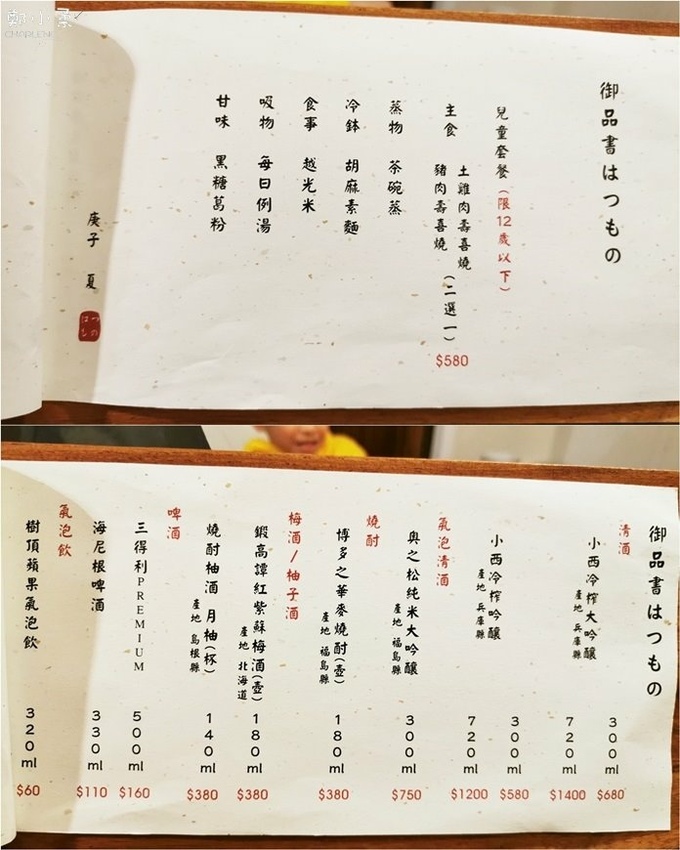 鄭小柔
御品書はつもの
兒童套餐(限12歲以下)
主食
土雞肉壽喜燒
豬肉壽喜燒(二選一)
$580
蒸物 茶碗蒸
冷鉢 胡麻素麵
食事 越光米
吸物 每日例湯
甘味 黑糖葛粉
庚子 夏
はつもの
御品書はつもの
清酒
小西冷榨大吟釀
產地 兵庫縣
300ml $680
720ml $1400
小西冷榨吟釀
產地 兵庫縣
300ml $580
720ml $1200
氣泡清酒
奧之松純米大吟釀
產地 福島縣
300ml $750
燒酎
博多之華麥燒酎(壺)
產地 福島縣
180ml $380
梅酒/柚子酒
鍛高譚紅紫蘇梅酒(壺)
產地 北海道
180ml $380
燒酎柚酒 月柚(杯)
產地 島根縣
140ml $380
啤酒
三得利PREMIUM
500ml $160
海尼根啤酒
330ml $110
氣泡飲
樹頂蘋果氣泡飲
320ml $60